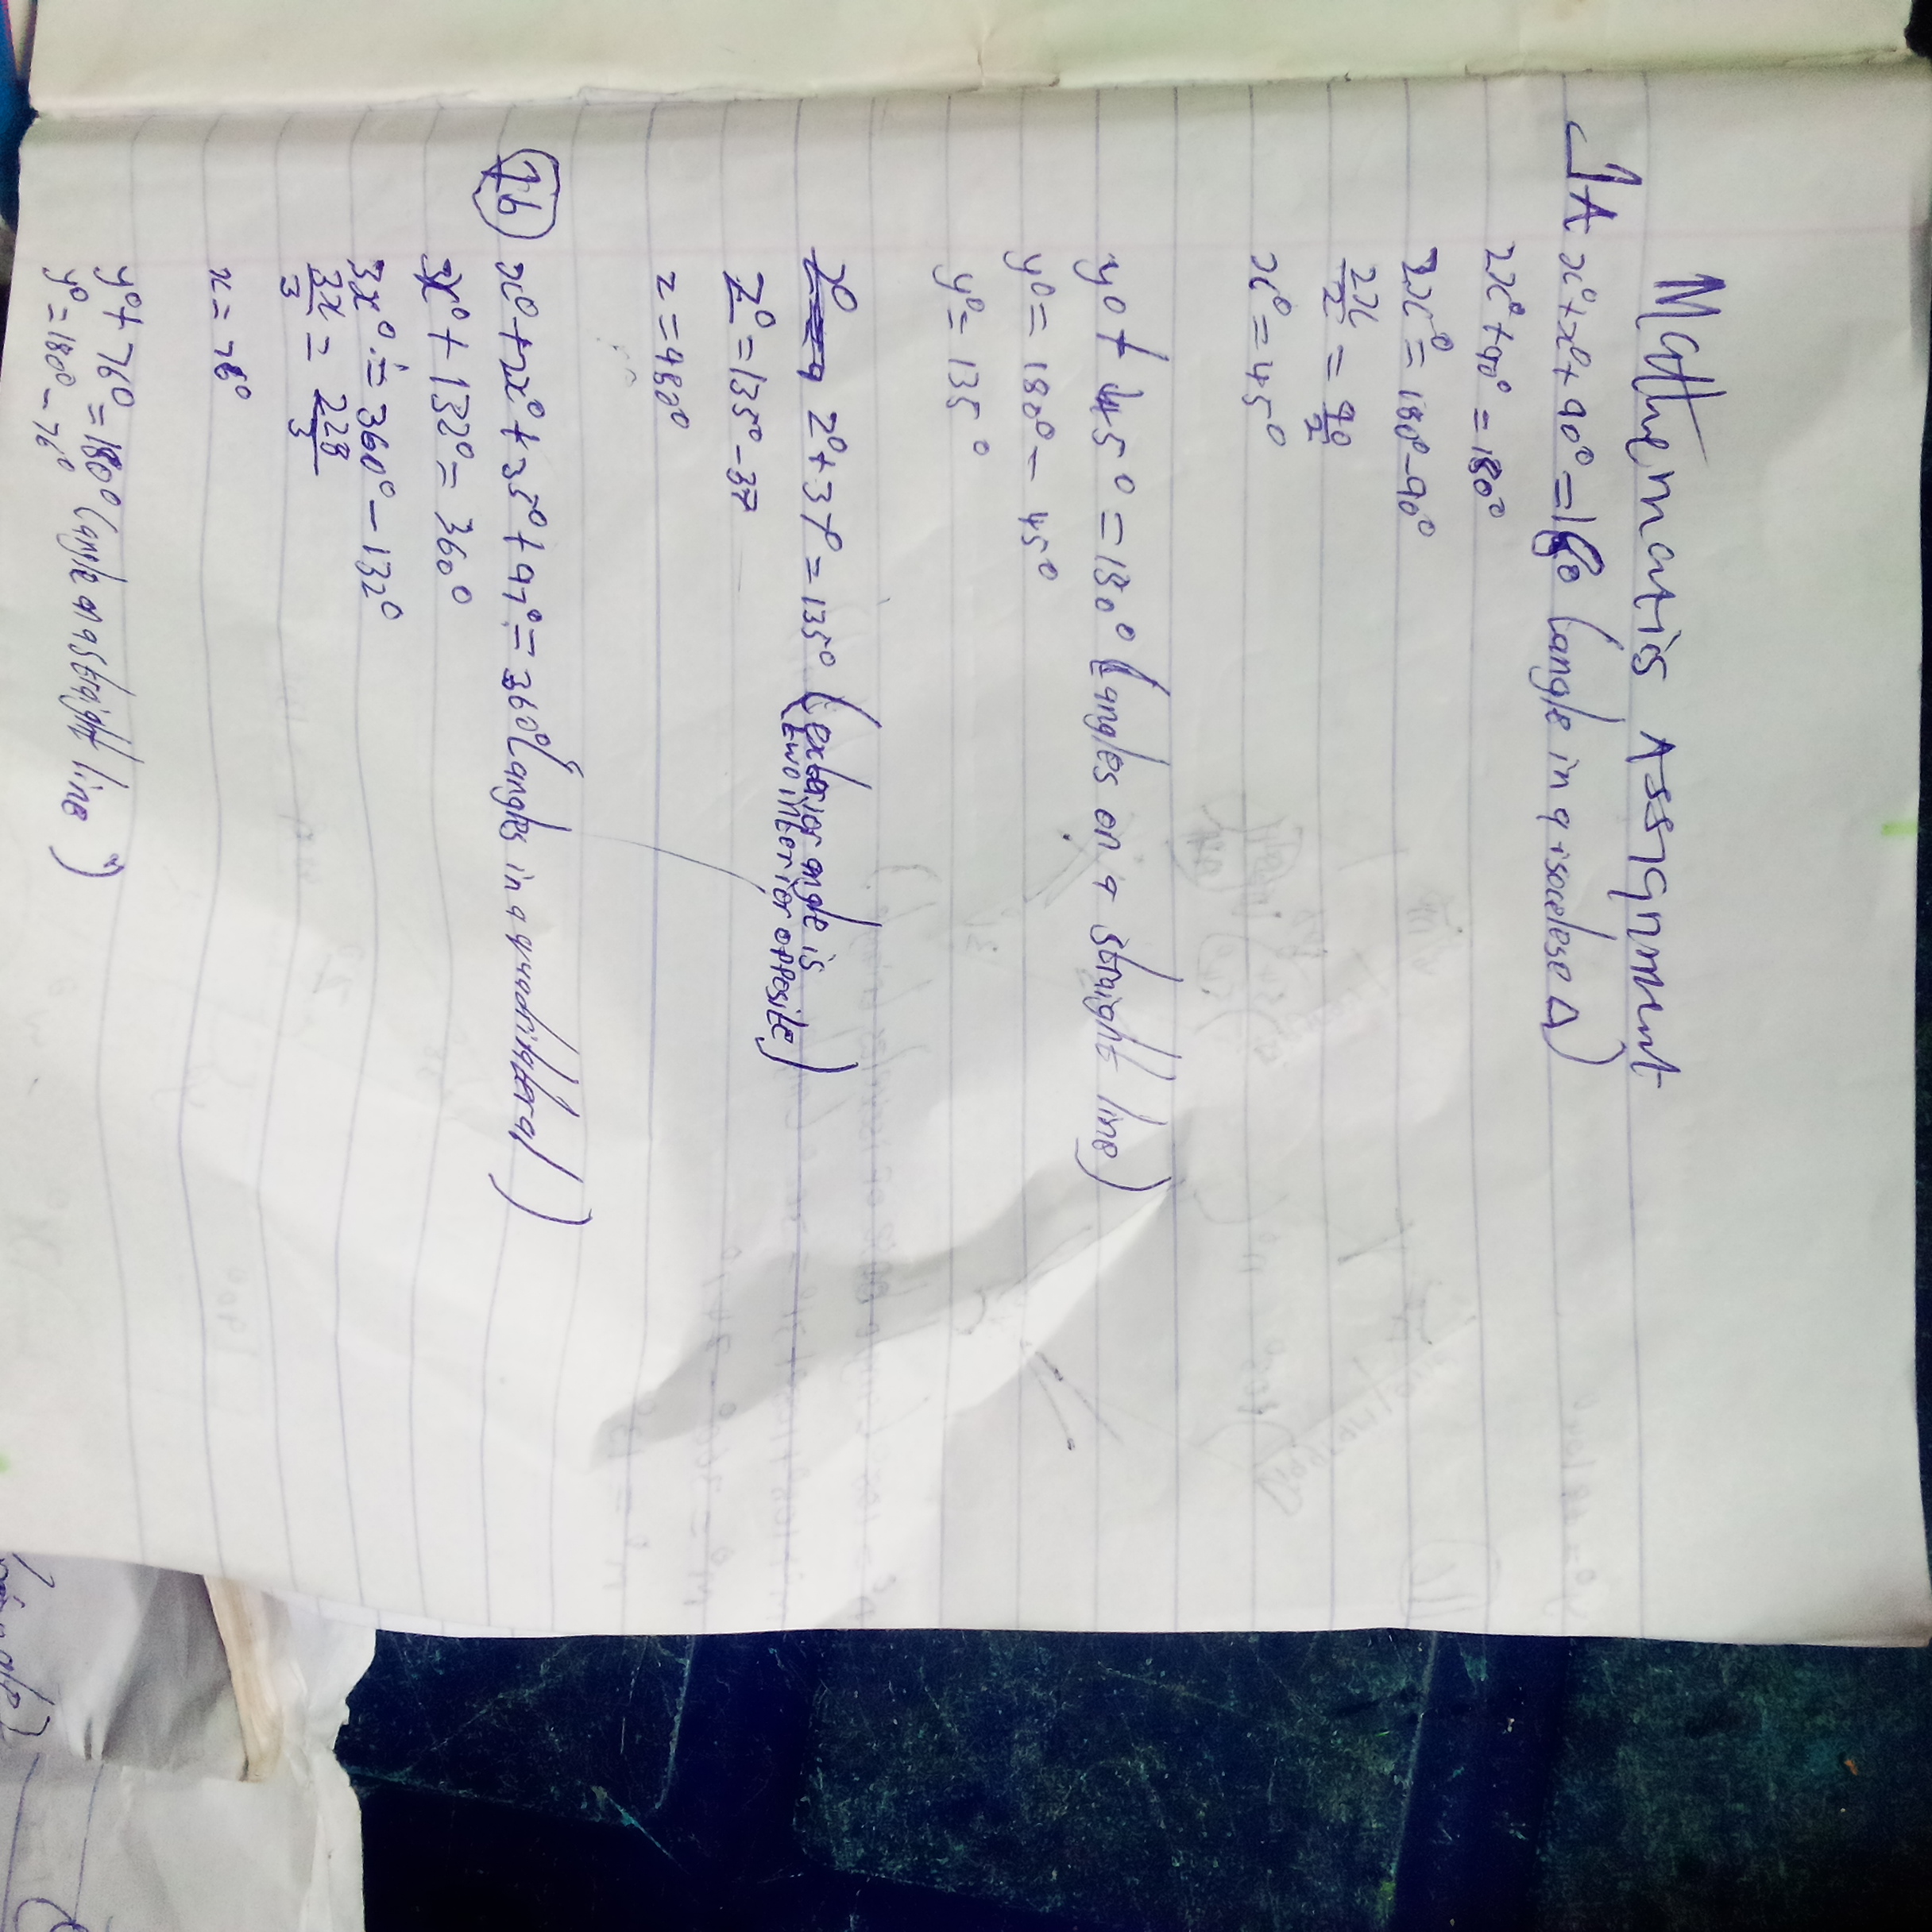 Mathematics Assignment
1A x° + x° + 90° = 180 (angle in a isocelese Δ)
2x° + 90° = 180°
2x° = 180° - 90°
2x/2 = 90/2
x° = 45°
y° + 45° = 180° (angles on a straight line)
y° = 180° - 45°
y° = 135°
z° + 37° = 135° (exterior angle is
two interior opposite)
z° = 135° - 37
z = 980°
1b x° + 2x° + 35° + 97° = 360° (angles in a quadrilateral)
3x° + 132° = 360°
3x° = 360° - 132°
3x/3 = 228/3
x = 76°
y° + 76° = 180° (angle on a straight line)
y° = 180° - 76°